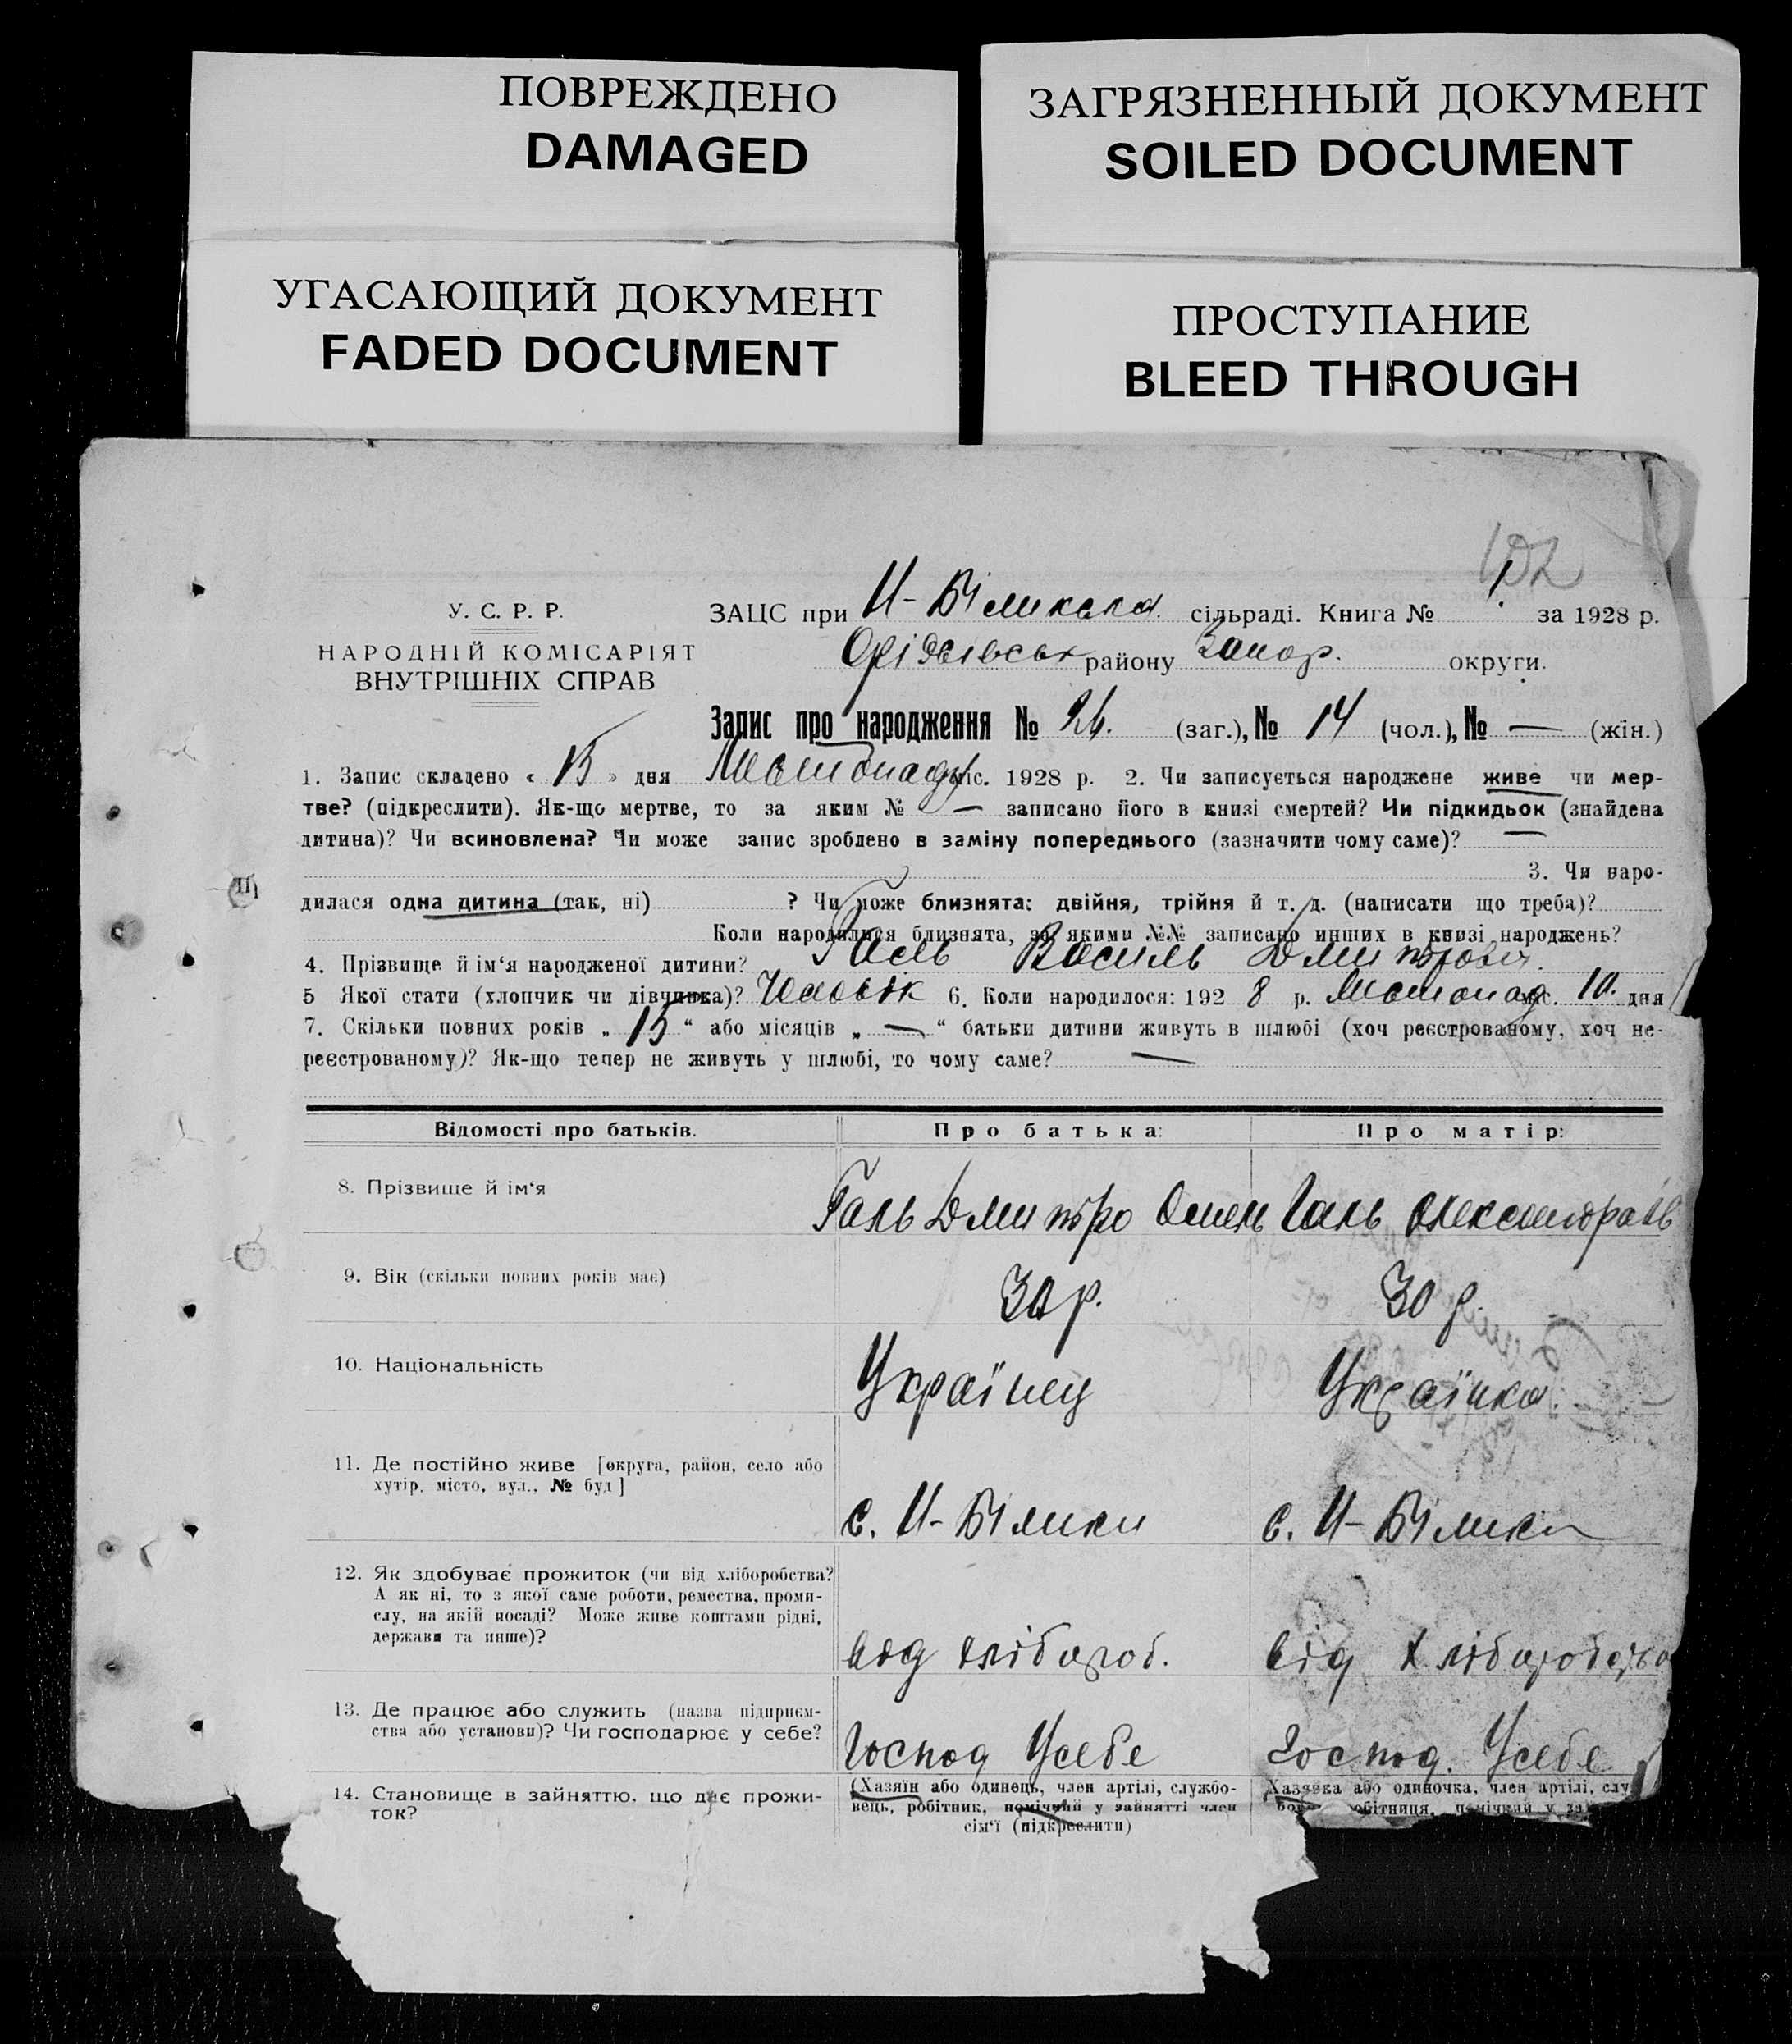 ПОВРЕЖДЕНО
DAMAGED
ЗАГРЯЗНЕННЫЙ ДОКУМЕНТ
SOILED DOCUMENT
УГАСАЮЩИЙ ДОКУМЕНТ
FADED DOCUMENT
ПРОСТУПАНИЕ
BLEED THROUGH
102
У. С. Р. Р.
НАРОДНІЙ КОМІСАРІЯТ
ВНУТРІШНІХ СПРАВ
ЗАЦС при Н-Білиська сільраді. Книга № 1 за 1928 р.
району Запор. округи.
Запис про народження № 26. (заг.), № 14 (чол.), № — (жін.)
1. Запис складено « 15 » дня Листопаду міс. 1928 р. 2. Чи записується народжене живе чи мер-
тве? (підкреслити). Як-що мертве, то за яким № — записано його в книзі смертей? Чи підкидьок (знайдена
дитина)? Чи всиновлена? Чи може запис зроблено в заміну попереднього (зазначити чому саме)? —
3. Чи наро-
дилася одна дитина (так, ні) ? Чи може близнята: двійня, трійня й т. д. (написати що треба)?
Коли народилися близнята, за якими №№ записано инших в книзі народжень?
4. Прізвище й ім‘я народженої дитини? Галь Василь Дмитрович
5 Якої стати (хлопчик чи дівчинка)? Чоловік 6. Коли народилося: 192 8 р. Листопад міс. 10. дня
7. Скільки повних років „ 15 “ або місяців „ — “ батьки дитини живуть в шлюбі (хоч реєстрованому, хоч не-
реєстрованому)? Як-що тепер не живуть у шлюбі, то чому саме? —
Відомості про батьків. Про батька: Про матір:
8. Прізвище й ім‘я Галь Дмитро Омель Галь
9. Вік (скільки повних років має) 30 р. 30 р.
10. Національність Українец Українка.
11. Де постійно живе [округа, район, село або
хутір, місто, вул., № буд]
с. Н-Білики с. Н-Білики
12. Як здобуває прожиток (чи від хліборобства?
А як ні, то з якої саме роботи, ремества, проми-
слу, на якій посаді? Може живе коштами рідні,
держави та инше)?
від хлібороб. від хліборобства
13. Де працює або служить (назва підприєм-
ства або установи)? Чи господарює у себе?
Господ Усебе Господ. Усебе
14. Становище в зайняттю, що дає прожи-
ток?
(Хазяїн або одинець, член артілі, службо-
вець, робітник, помічний у зайнятті член
сім‘ї (підкреслити)
Хазяйка або одиночка, член артілі, слу
робітниця, помічний у за